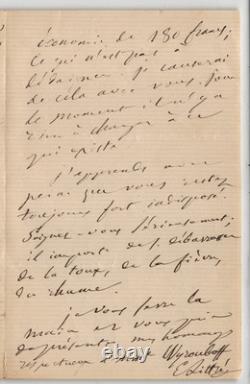 économie de 180 francs,
ce qui n'est pas à
dédaigner. Je causerai
de cela avec vous. Pour
le moment il n'y a
rien à changer à ce
qui existe.
J'apprends avec
peine que vous restez
toujours fort indisposé.
Soignez-vous sérieusement;
il importe de se débarrasser
de la toux, de la fièvre,
du rhume.
Je vous serre la
main et vous prie
de présenter mes hommages
respectueux à Mme Wyrouboff
E. Littré